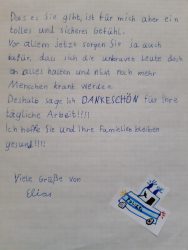 Dass es Sie gibt, ist für mich aber ein
tolles und sicheres Gefühl.
Vor allem Jetzt sorgen Sie ja auch
dafür, dass sich die Leute doch
an alles halten und nicht noch mehr
Menschen krank werden.
Deshalb sage ich DANKESCHÖN für Ihre
tägliche Arbeit!!!!
Ich hoffe Sie und Ihre Familien bleiben
gesund!!!!
Viele Grüße von
Elias